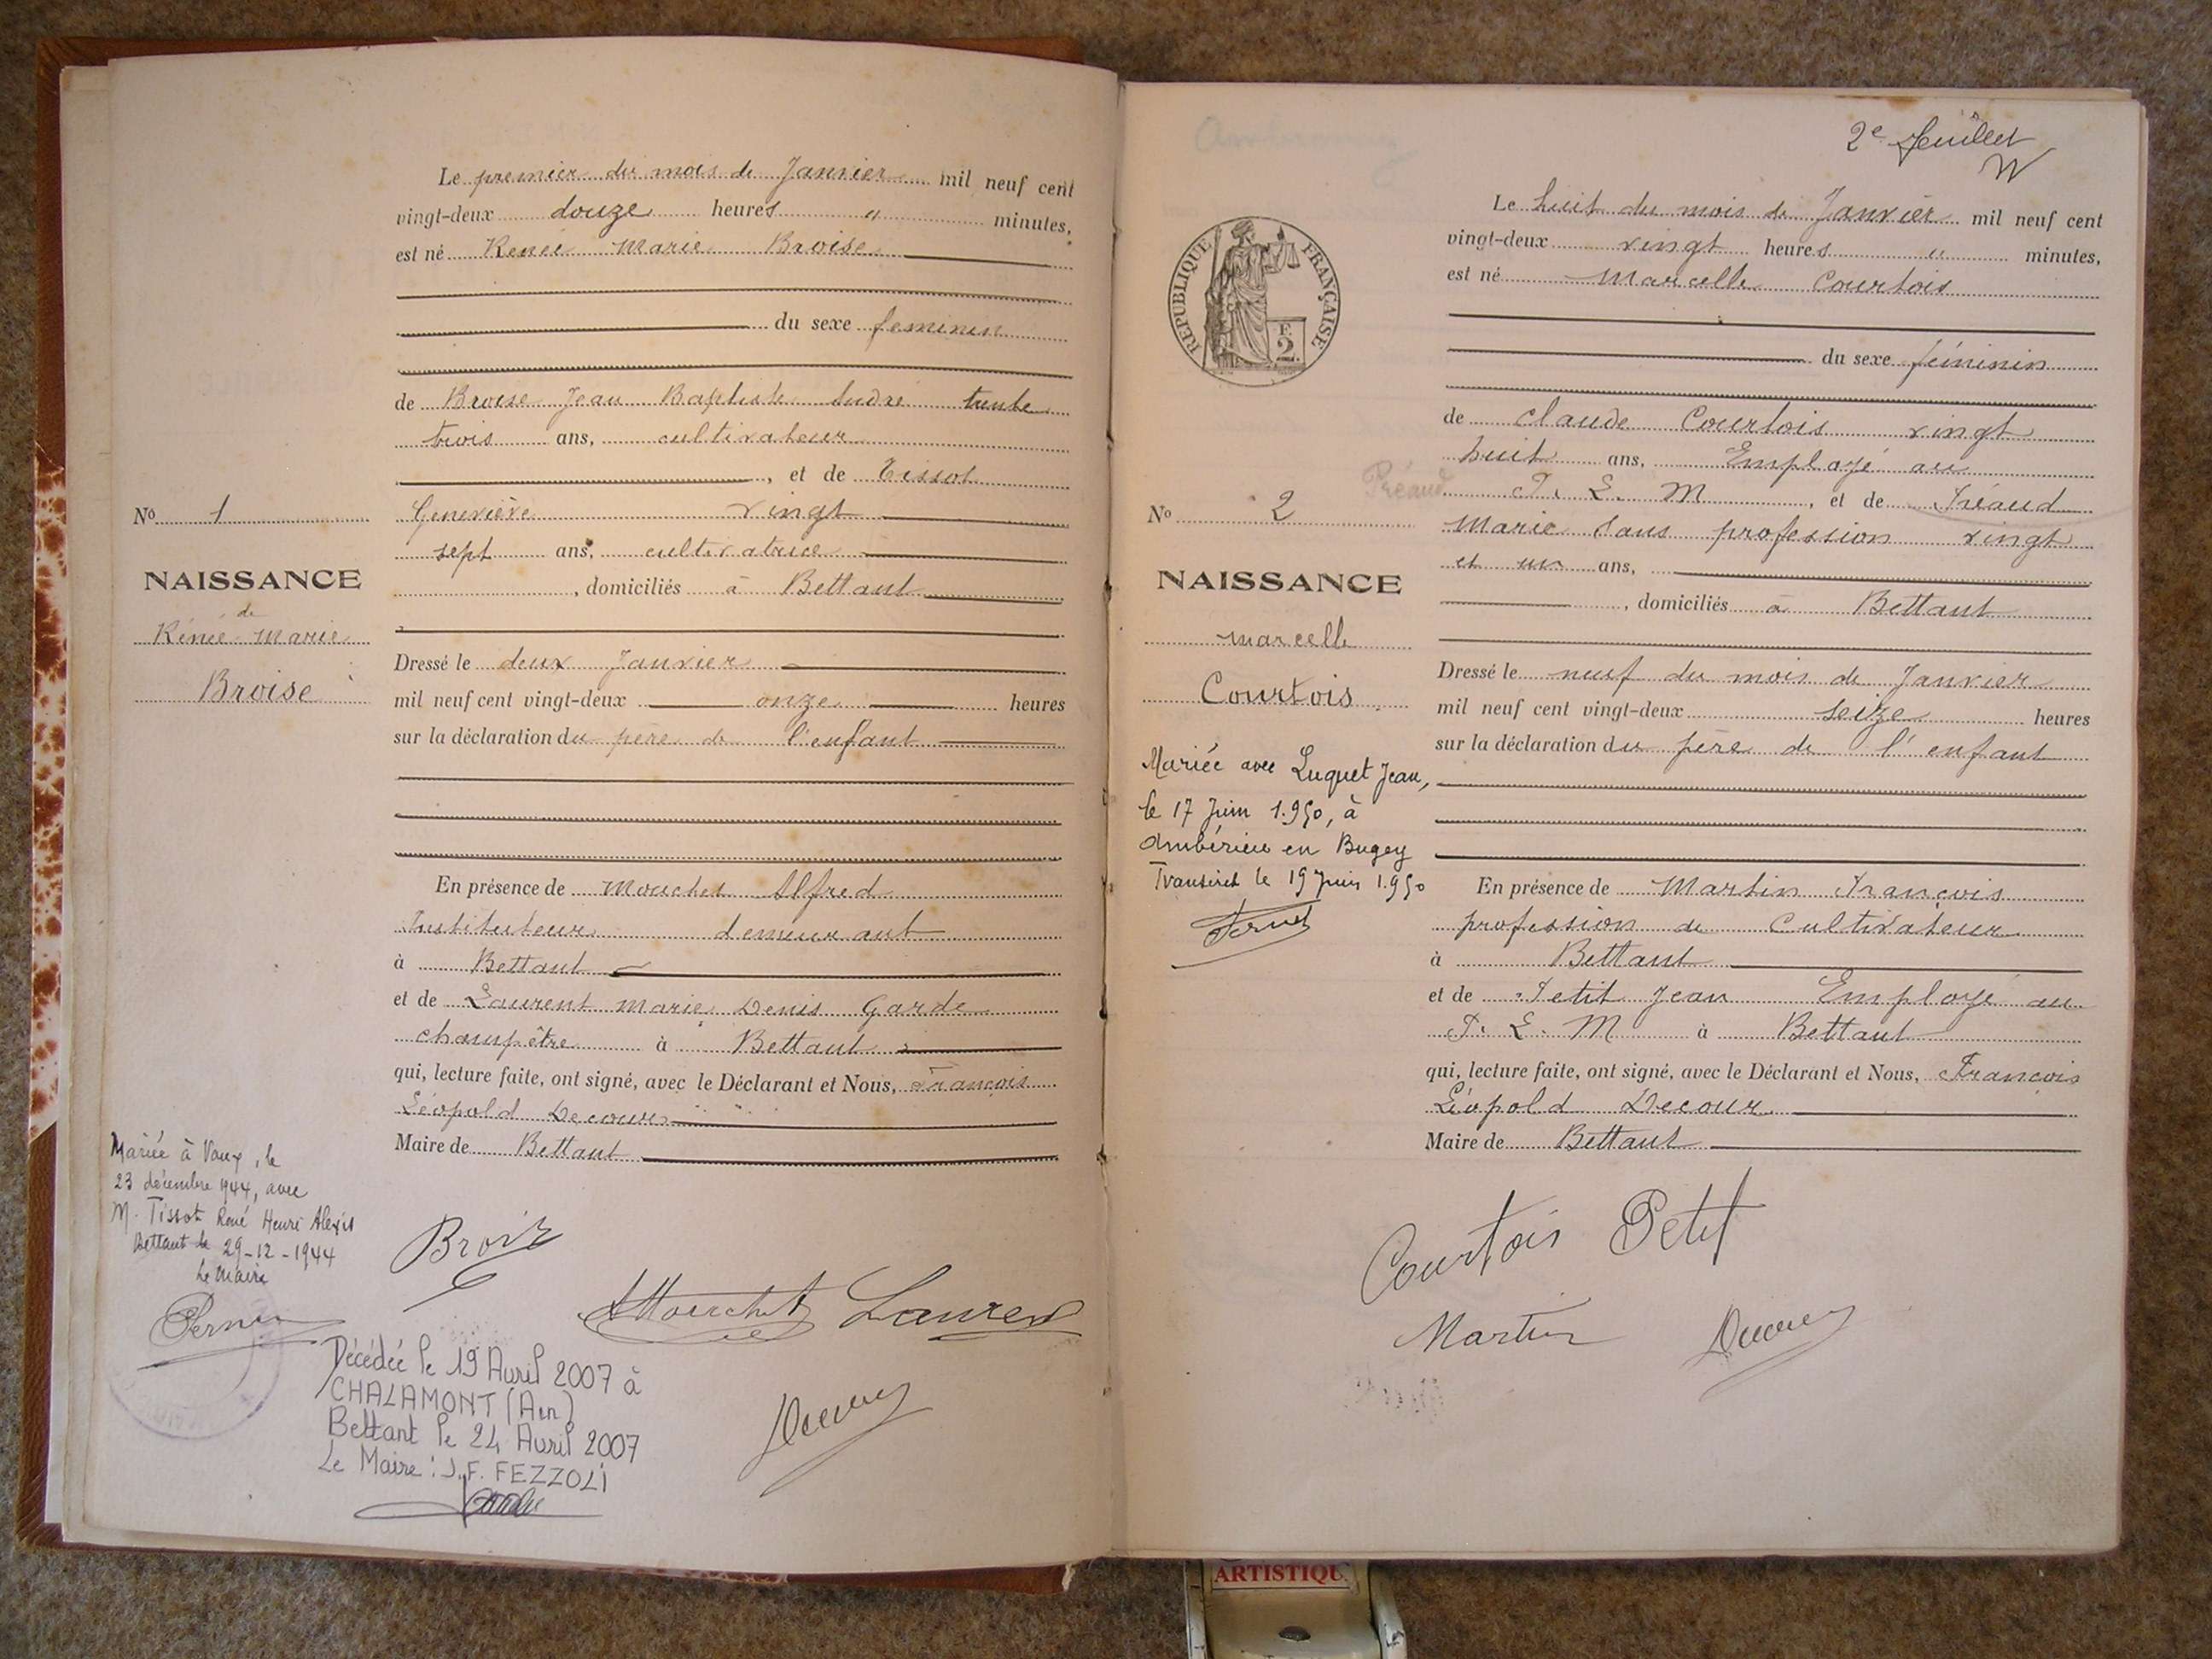 Le premier du mois de Janvier mil neuf cent
vingt-deux douze heures " minutes,
est né Renée Marie Broise
du sexe feminin
de Broise Jean Baptiste André trente
trois ans, cultivateur
, et de Tissot
Geneviève vingt
sept ans, cultivatrice
, domiciliés à Bettant
Dressé le deux Janvier
mil neuf cent vingt-deux onze heures
sur la déclaration du père de l'enfant
En présence de Mouchet Alfred
Instituteur demeurant
à Bettant
et de Laurent Marie Denis Garde
champêtre à Bettant
qui, lecture faite, ont signé, avec le Déclarant et Nous, François
Léopold Decour
Maire de Bettant
No 1
NAISSANCE
de
Rénée Marie
Broise
Mariée à Vaux, le
23 décembre 1944, avec
M. Tissot René Henri Alexis
Bettant le 29-12-1944
Le Maire
Broise
Mouchet Laurent
Décédée le 19 Avril 2007 à
CHALAMONT (Ain)
Bettant le 24 Avril 2007
Le Maire : J.F. FEZZOLI
2e feuillet
REPUBLIQUE FRANÇAISE
F.
2
Le huit du mois de Janvier mil neuf cent
vingt-deux vingt heures " minutes,
est né Marcelle Courtois
du sexe féminin
de Claude Courtois vingt
huit ans, Employé au
P. L. M , et de Préaud
Marie Sans profession vingt
et un ans,
, domiciliés à Bettant
Dressé le neuf du mois de Janvier
mil neuf cent vingt-deux seize heures
sur la déclaration du père de l'enfant
En présence de Martin François
profession de Cultivateur
à Bettant
et de Petit Jean Employé au
P. L. M à Bettant
qui, lecture faite, ont signé, avec le Déclarant et Nous, François
Léopold Decour
Maire de Bettant
Préaud
No 2
NAISSANCE
Marcelle
Courtois
Mariée avec Luquet Jean,
le 17 Juin 1.950, à
Ambérieu en Bugey
Transcrit le 19 Juin 1.950
Courtois Petit
Martin Decour
ARTISTIQU